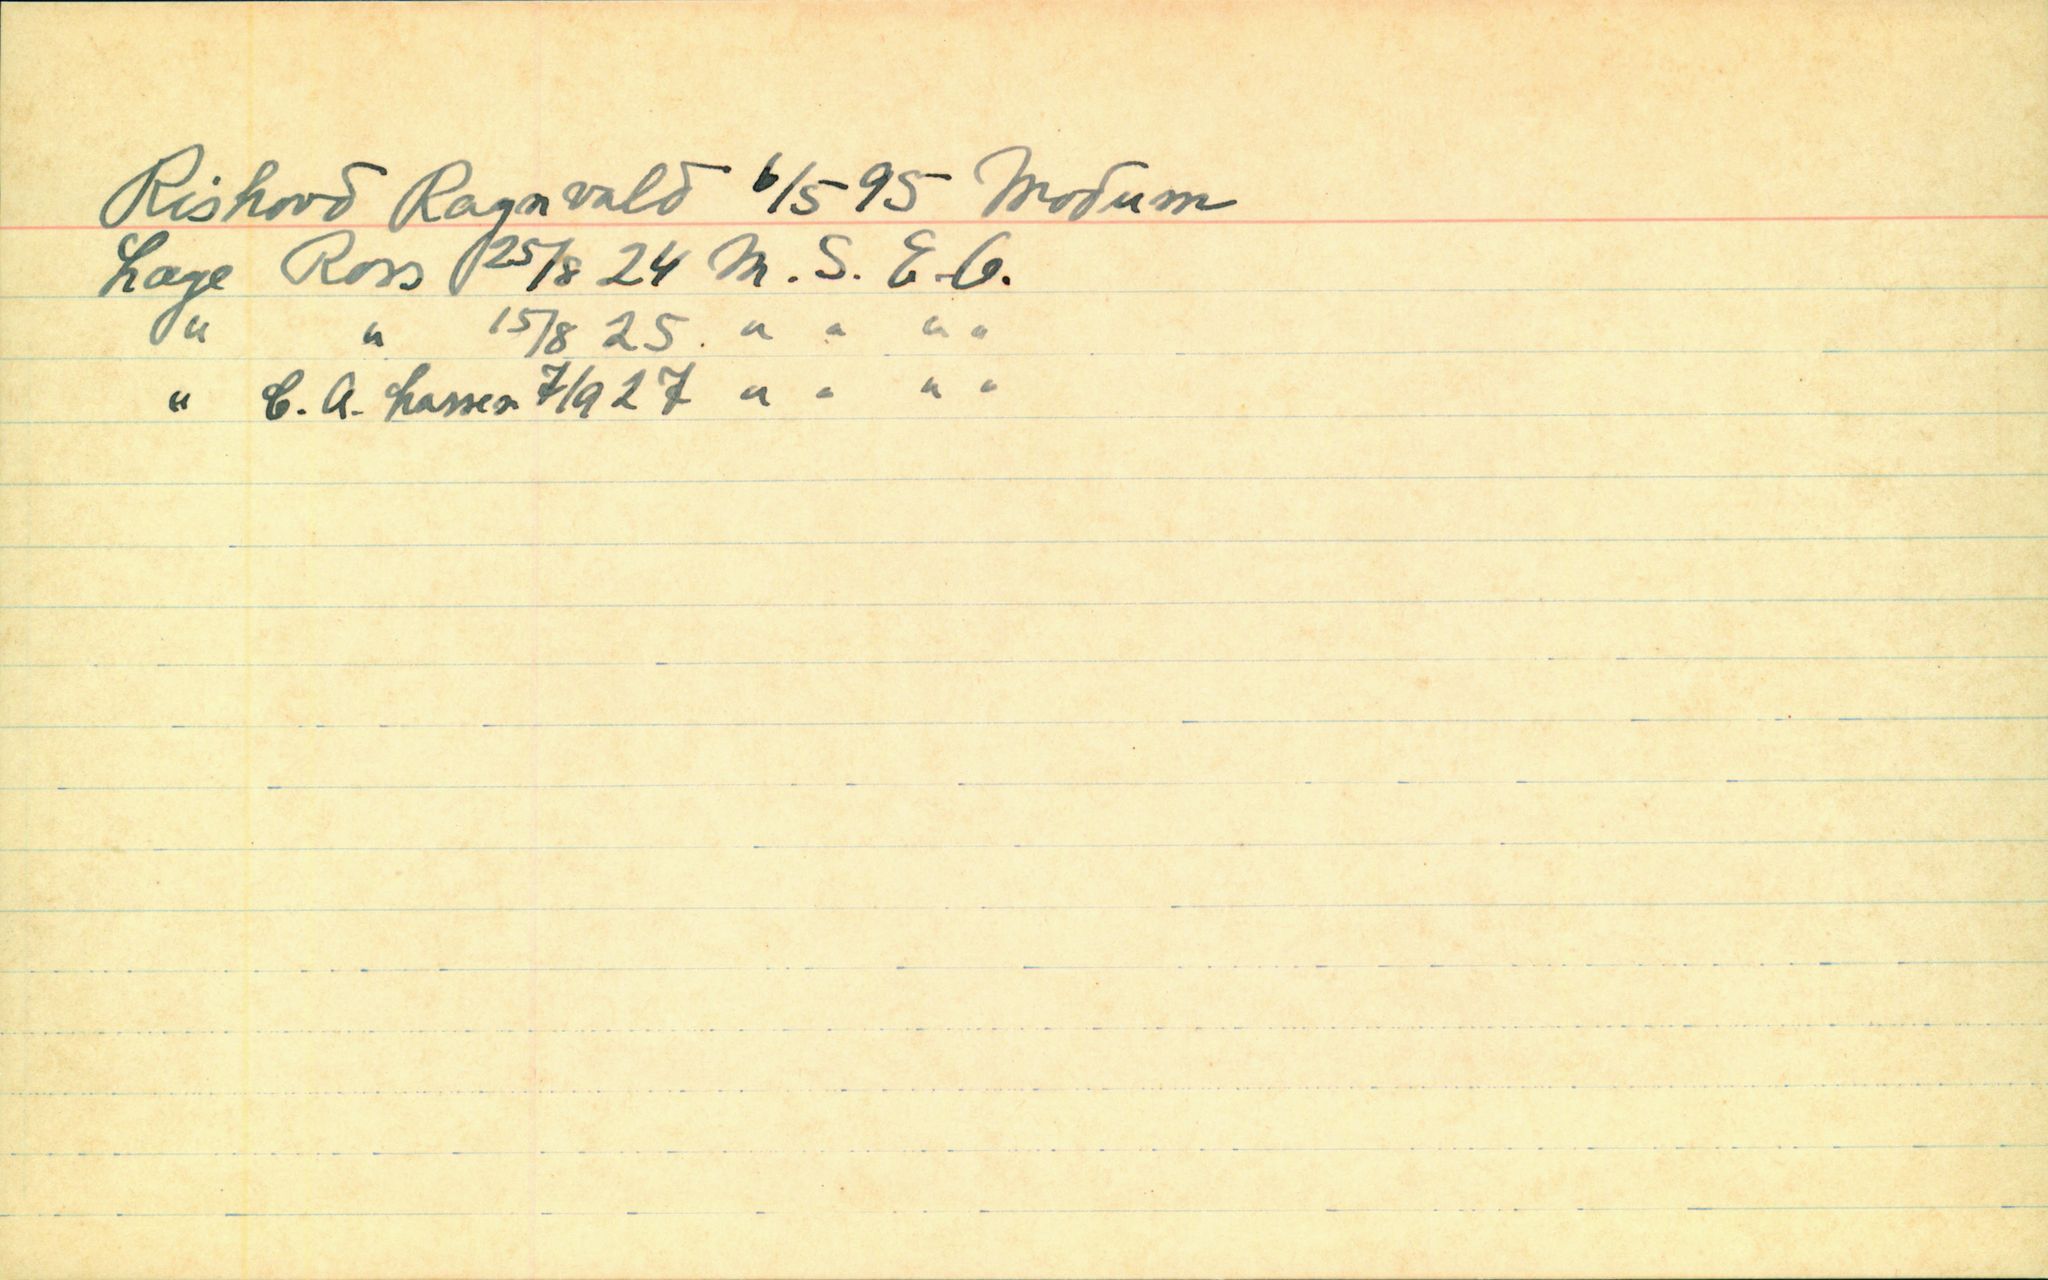 Rishovd Ragnvald 6/5 95 Modum
Læge Ross 25/8 24 M. S. E. G.
" " 15/8 25. " " " "
" C. A. Larsen 7/9 27 " " " "